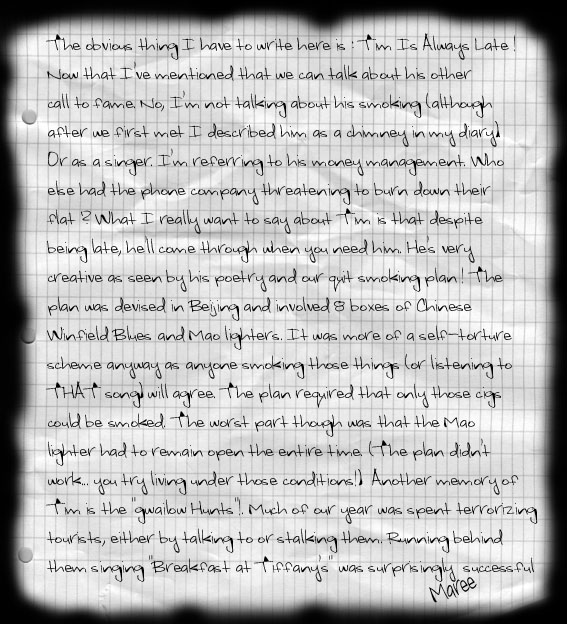 The obvious thing I have to write here is : Tim Is Always Late !
Now that I've mentioned that we can talk about his other
call to fame. No, I'm not talking about his smoking (although
after we first met I described him as a chimney in my diary)
Or as a singer. I'm referring to his money management. Who
else had the phone company threatening to burn down their
flat ? What I really want to say about Tim is that despite
being late, he'll come through when you need him. He's very
creative as seen by his poetry and our quit smoking plan! The
plan was devised in Beijing and involved 8 boxes of Chinese
Winfield Blues and Mao lighters. It was more of a self-torture
scheme anyway as anyone smoking those things (or listening to
THAT song) will agree. The plan required that only those cigs
could be smoked. The worst part though was that the Mao
lighter had to remain open the entire time. (The plan didn't
work... you try living under those conditions!) Another memory of
Tim is the "gwailow Hunts". Much of our year was spent terrorizing
tourists, either by talking to or stalking them. Running behind
them singing "Breakfast at Tiffany's" was surprisingly successful
Maree